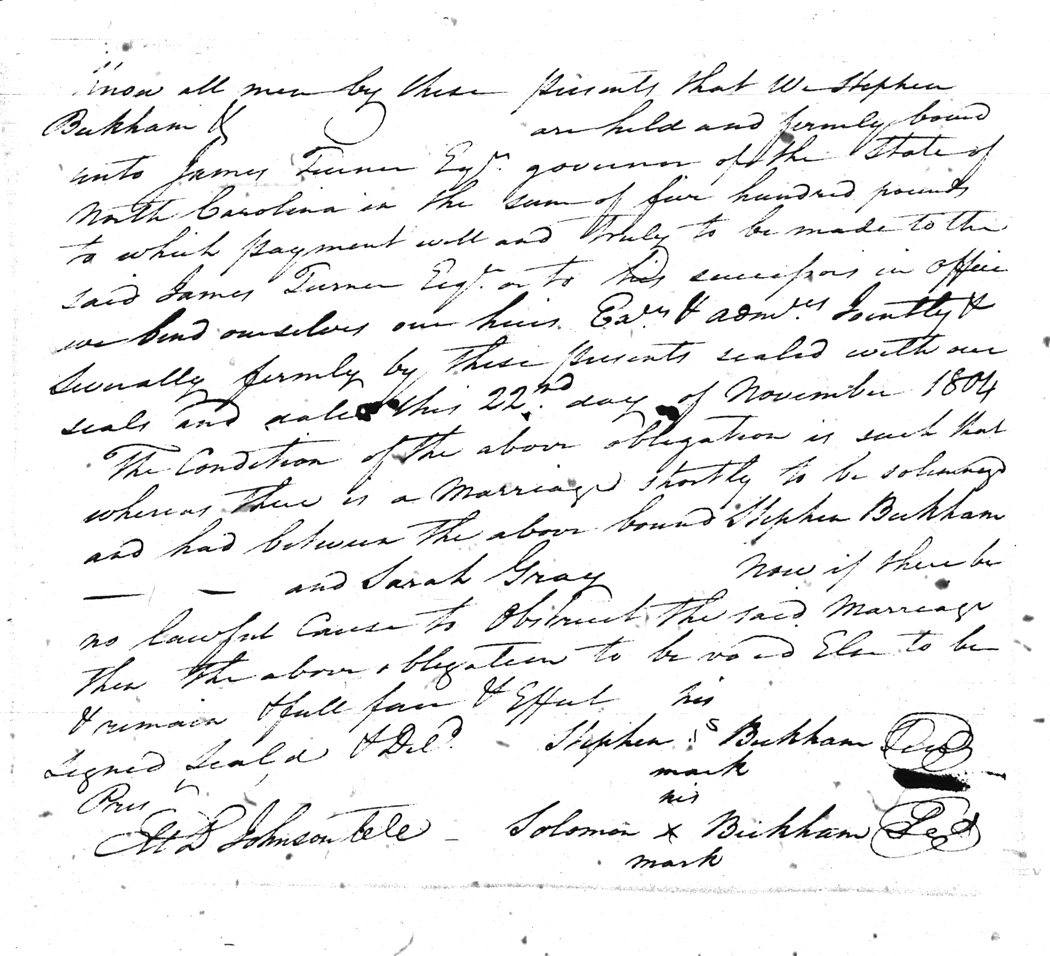 Know all men by these presents that We Stephen
Beckham &                    are held and firmly bound
unto James Turner Esqr. governor of the State of
North Carolina in the sum of five hundred pounds
to which payment well and truly to be made to the
said James Turner Esqr. or to his successors in office
we bend ourselves our heirs Exrs & admrs Jointly &
severally firmly by these presents sealed with our
seals and dated this 22nd day of November 1804
The Condition of the above obligation is such that
whereas there is a Marriage shortly to be solemnized
and had between the above bound Stephen Beckham
— — and Sarah Gray          Now if there be
no lawful Cause to Obstruct the said Marriage
then the above obligation to be void Else to be
& remain full force & Effect
Signed Seal'd & Deld.
Pres
Johnson
his
Stephen S Beckham Seal
mark
his
Solomon x Beckham Seal
mark